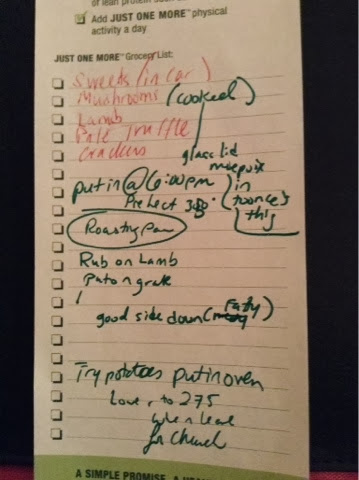 of lean protein such as
Add JUST ONE MORE™ physical
activity a day
JUST ONE MORE™ Grocery List:
Sweets (in car)
Mushrooms (cooked)
Lamb
Pate Truffle
Crackers
glass lid
put in @ 6:00pm in
PreHeat 350° this
Roasting Pan
Rub on Lamb
Put on grate
good side down (Fatty)
Try potatoes put in oven
Lower to 275
when leave
for church
A SIMPLE PROMISE